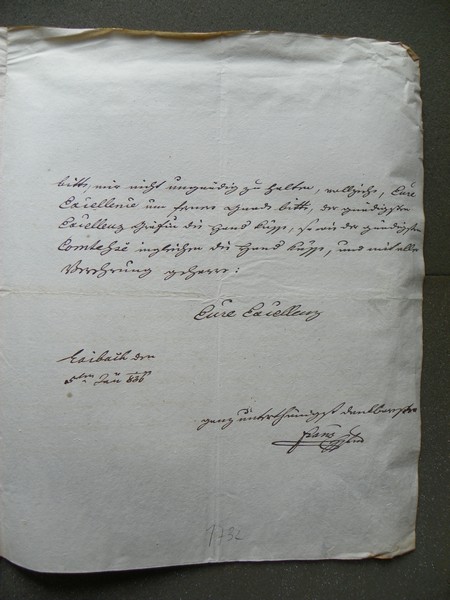 bitte, mir nicht ungnädig zu halten, vollziehe, Eure
Excellenz um fernere Gnade bitte, der gnädigsten
Excellenz Gräfin die Hand küsse, so wie der gnädigsten
Comtesse ingleichen die Hand küsse, und mit aller
Verehrung geharre:
Eure Excellenz
Laibach den
5ten Jän 836
ganz unterthänigst dankbarster
Franz
1732